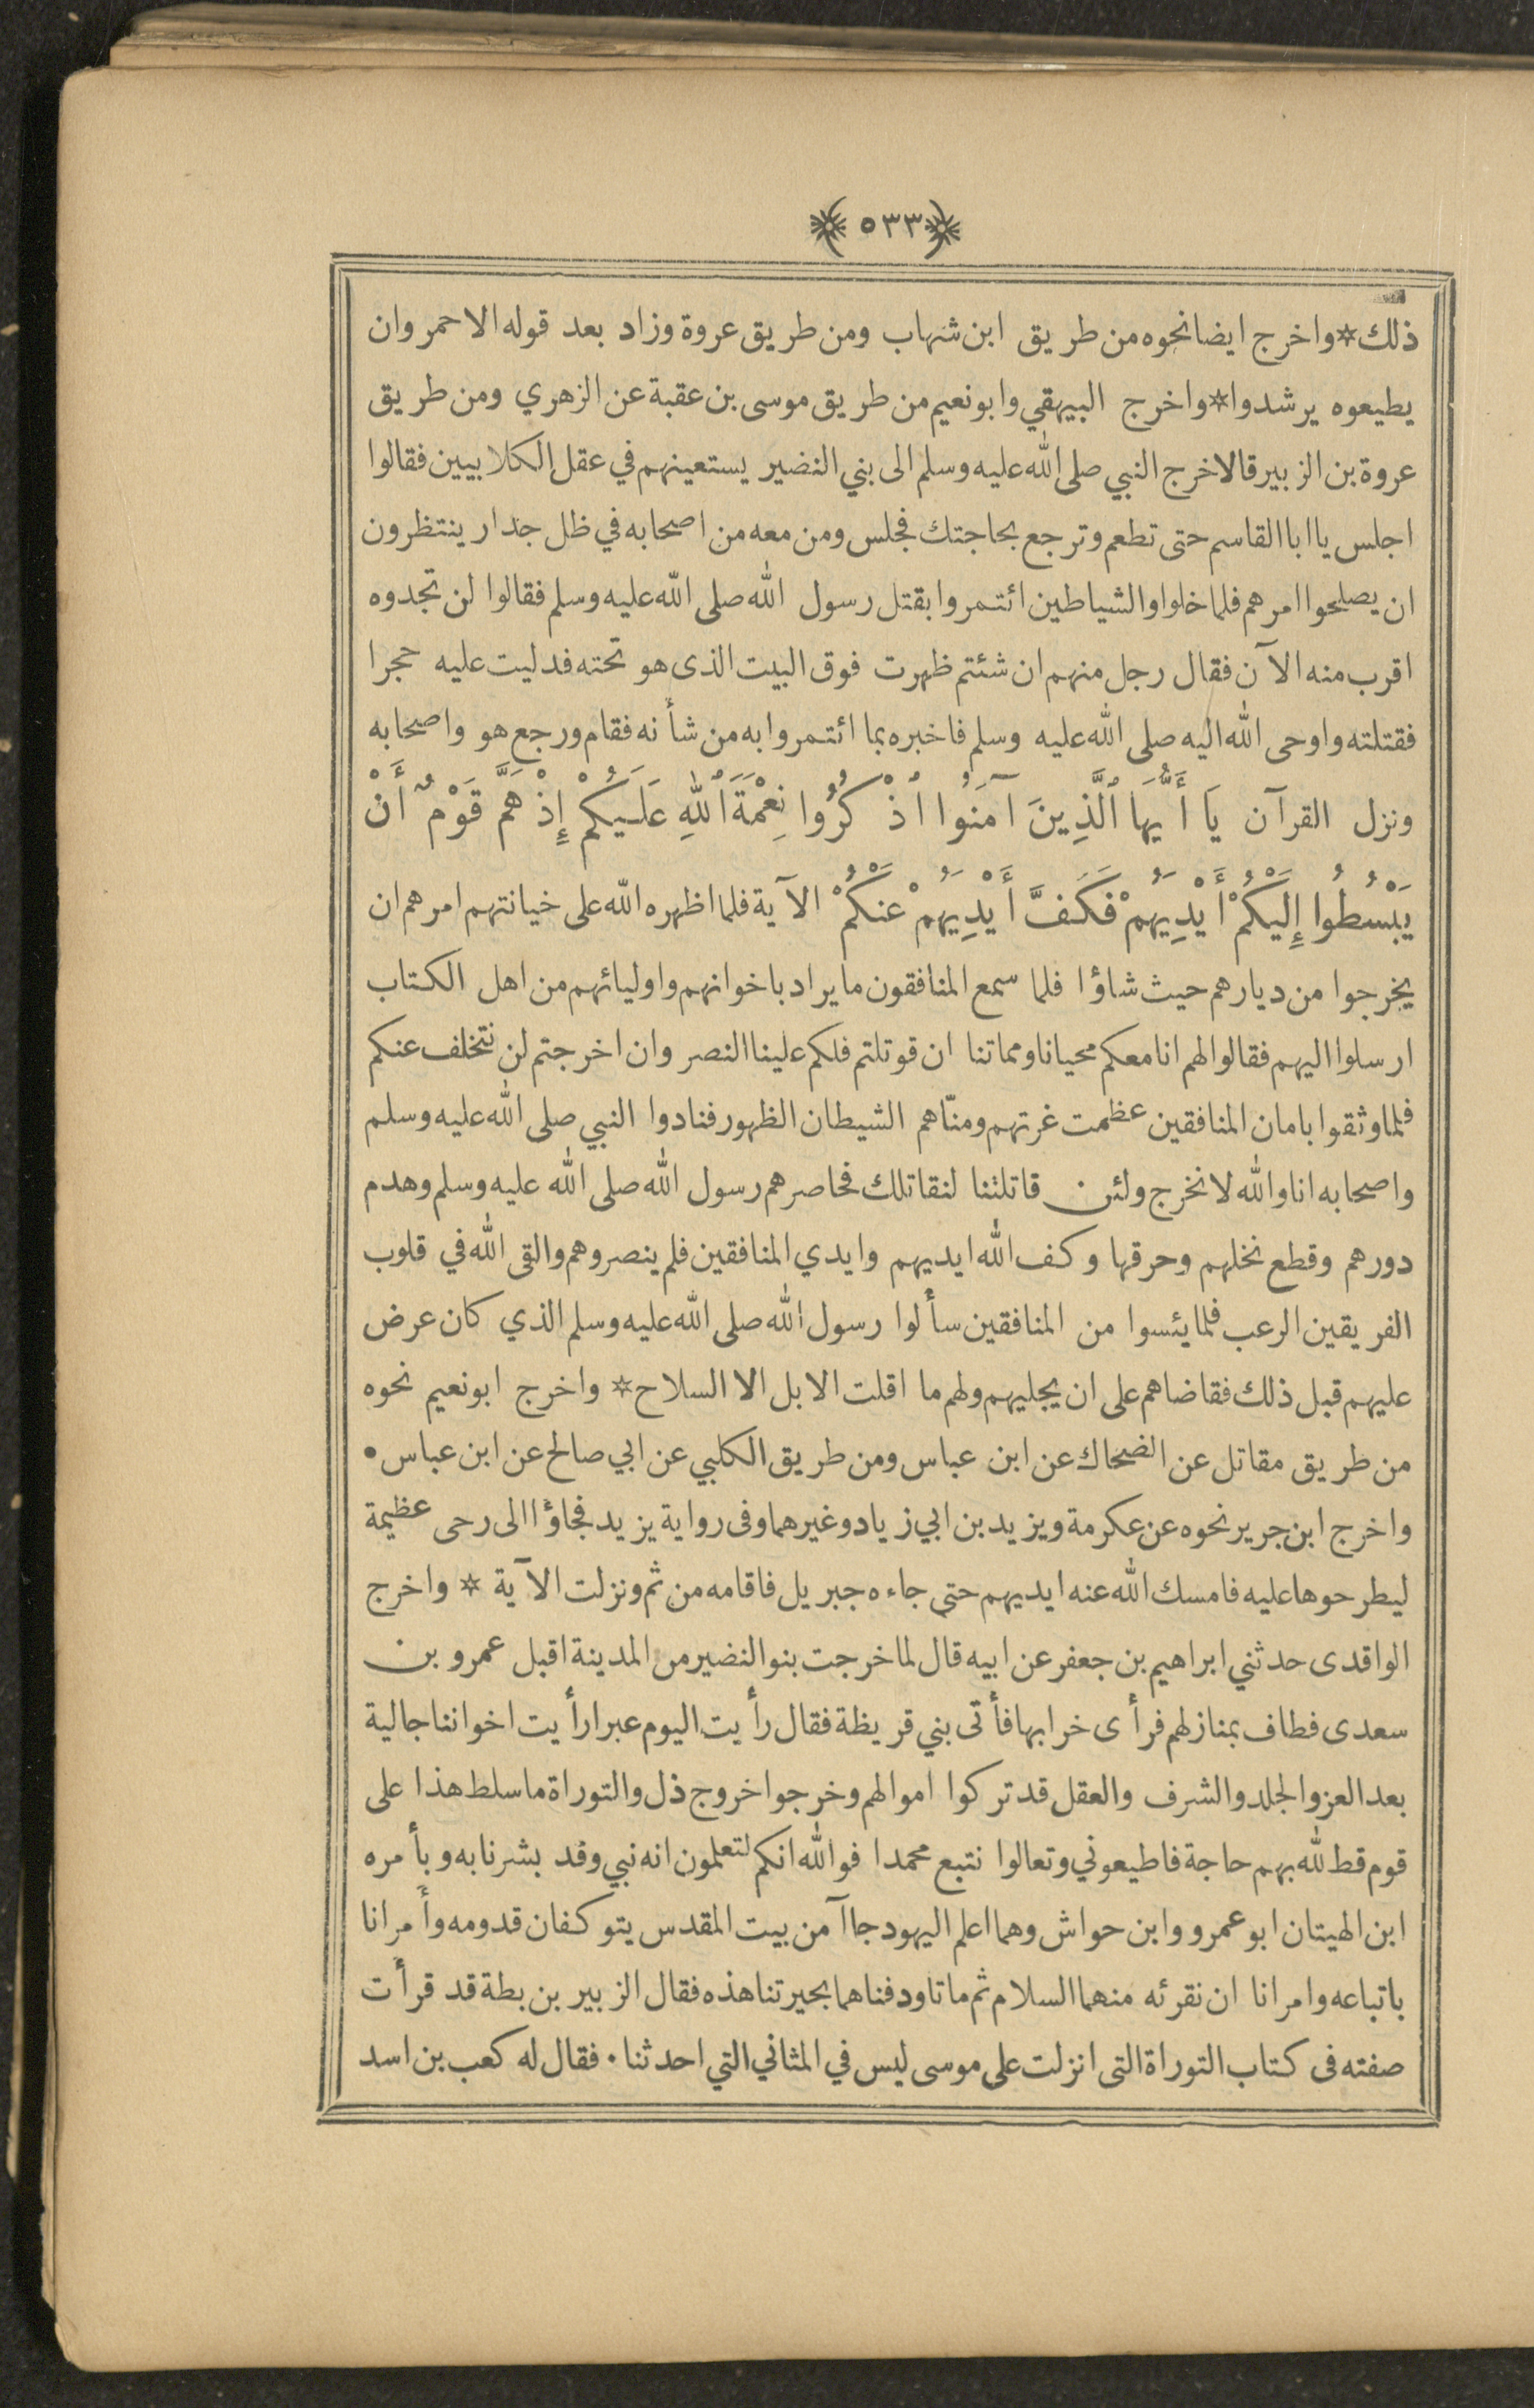 ﴿٥٣٣﴾
ذلك * واخرج ايضا نحوه من طريق ابن شهاب ومن طريق عروة وزاد بعد قوله الاحمر وان
يطيعوه يرشدوا * واخرج البيهقي وابو نعيم من طريق موسى بن عقبة عن الزهري ومن طريق
عروة بن الزبير قالا خرج النبي صلى الله عليه وسلم الى بني النضير يستعينهم في عقل الكلابيين فقالوا
اجلس يا ابا القاسم حتى تطعم وترجع بحاجتك فجلس ومن معه من اصحابه في ظل جدار ينتظرون
ان يصلحوا امرهم فلما خلوا والشياطين ائتمروا بقتل رسول الله صلى الله عليه وسلم فقالوا لن تجدوه
اقرب منه الآن فقال رجل منهم ان شئتم ظهرت فوق البيت الذى هو تحته فدليت عليه حجرا
فقتلته واوحى الله اليه صلى الله عليه وسلم فاخبره بما ائتمروا به من شأنه فقام ورجع هو واصحابه
ونزل القرآن يَا أَيُّهَا ٱلَّذِينَ آمَنُوا ٱذْكُرُوا نِعْمَةَ ٱللهِ عَلَيْكُمْ إِذْ هَمَّ قَوْمٌ أَنْ
يَبْسُطُوا إِلَيْكُمْ أَيْدِيَهُمْ فَكَفَّ أَيْدِيَهُمْ عَنْكُمْ الآية فلما اظهره الله على خيانتهم امرهم ان
يخرجوا من ديارهم حيث شاؤا فلما سمع المنافقون ما يراد باخوانهم واوليائهم من اهل الكتاب
ارسلوا اليهم فقالوا لهم انا معكم محيانا ومماتنا ان قوتلتم فلكم علينا النصر وان اخرجتم لن نتخلف عنكم
فلما وثقوا بامان المنافقين عظمت غرتهم ومنّاهم الشيطان الظهور فنادوا النبي صلى الله عليه وسلم
واصحابه انا والله لا نخرج ولئن قاتلتنا لنقاتلك فحاصرهم رسول الله صلى الله عليه وسلم وهدم
دورهم وقطع نخلهم وحرقها وكف الله ايديهم وايدي المنافقين فلم ينصروهم والقى الله في قلوب
الفريقين الرعب فلما يئسوا من المنافقين سألوا رسول الله صلى الله عليه وسلم الذي كان عرض
عليهم قبل ذلك فقاضاهم على ان يجليهم ولهم ما اقلت الابل الا السلاح * واخرج ابو نعيم نحوه
من طريق مقاتل عن الضحاك عن ابن عباس ومن طريق الكلبي عن ابي صالح عن ابن عباس •
واخرج ابن جرير نحوه عن عكرمة ويزيد بن ابي زياد وغيرهما وفى رواية يزيد فجاؤا الى رحى عظيمة
ليطرحوها عليه فامسك الله عنه ايديهم حتى جاءه جبريل فاقامه من ثم ونزلت الآية * واخرج
الواقدى حدثني ابراهيم بن جعفر عن ابيه قال لما خرجت بنو النضير من المدينة اقبل عمرو بن
سعدى فطاف بمنازلهم فرأى خرابها فأتى بني قريظة فقال رأيت اليوم عبرا رأيت اخواننا جالية
بعد العز والجلد والشرف والعقل قد تركوا اموالهم وخرجوا خروج ذل والتوراة ما سلط هذا على
قوم قط لله بهم حاجة فاطيعوني وتعالوا نتبع محمدا فوالله انكم لتعلمون انه نبي وقد بشرنا به وبأمره
ابن الهيتان ابو عمرو وابن حواش وهما اعلم اليهود جاآ من بيت المقدس يتوكفان قدومه وأمرانا
باتباعه وامرانا ان نقرئه منهما السلام ثم ماتا ودفناهما بحيرتنا هذه فقال الزبير بن بطة قد قرأت
صفته فى كتاب التوراة التى انزلت على موسى ليس في المثاني التي احدثنا • فقال له كعب بن اسد